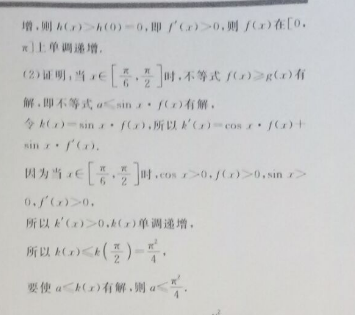 增,则 h(x)>h(0)=0,即 f′(x)>0,则 f(x)在[0,
π]上单调递增.
(2)证明:当 x∈[π/6,π/2]时,不等式 f(x)≥g(x)有
解,即不等式 a≤sin x·f(x)有解,
令 k(x)=sin x·f(x),所以 k′(x)=cos x·f(x)+
sin x·f′(x).
因为当 x∈[π/6,π/2]时,cos x>0,f(x)>0,sin x>
0,f′(x)>0,
所以 k′(x)>0,k(x)单调递增,
所以 k(x)≤k(π/2)=π²/4,
要使 a≤k(x)有解,则 a≤π²/4.